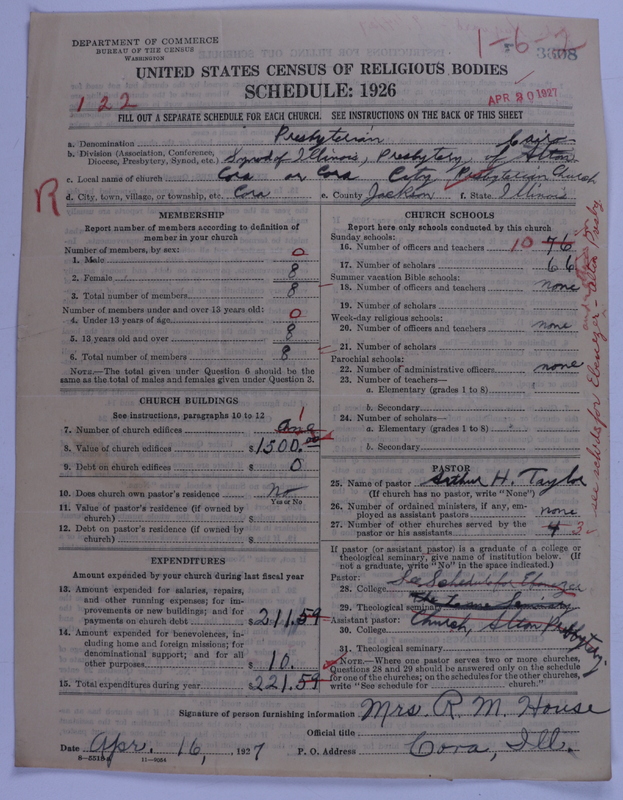 1-6-2
3808
DEPARTMENT OF COMMERCE
BUREAU OF THE CENSUS
WASHINGTON
UNITED STATES CENSUS OF RELIGIOUS BODIES
SCHEDULE: 1926
APR 20 1927
122
FILL OUT A SEPARATE SCHEDULE FOR EACH CHURCH. SEE INSTRUCTIONS ON THE BACK OF THIS SHEET
a. Denomination Presbyterian
b. Division (Association, Conference, Diocese, Presbytery, Synod, etc.) Synod of Illinois, Presbytery of Alton Cairo
c. Local name of church Cora or Cora City Presbyterian Church
R
d. City, town, village, or township, etc. Cora e. County Jackson f. State Illinois
MEMBERSHIP
Report number of members according to definition of
member in your church
Number of members, by sex:
1. Male 0
2. Female 8
3. Total number of members 8
Number of members under and over 13 years old:
4. Under 13 years of age 0
5. 13 years old and over 8
6. Total number of members 8
NOTE.—The total given under Question 6 should be
same as the total of males and females given under Question 3.
CHURCH BUILDINGS
See instructions, paragraphs 10 to 12
7. Number of church edifices one 1
8. Value of church edifices $1500.00
9. Debt on church edifices $ 0
10. Does church own pastor's residence No
Yes or No
11. Value of pastor's residence (if owned by
church) $
12. Debt on pastor's residence (if owned by
church) $
EXPENDITURES
Amount expended by your church during last fiscal year
13. Amount expended for salaries, repairs,
and other running expenses; for im-
provements or new buildings; and for
payments on church debt $211.59
14. Amount expended for benevolences, in-
cluding home and foreign missions; for
denominational support; and for all
other purposes $10.
15. Total expenditures during year $221.59
CHURCH SCHOOLS
Report here only schools conducted by this church
Sunday schools:
16. Number of officers and teachers 10 76
17. Number of scholars 66
Summer vacation Bible schools:
18. Number of officers and teachers none
19. Number of scholars
Week-day religious schools:
20. Number of officers and teachers none
21. Number of scholars
Parochial schools:
22. Number of administrative officers none
23. Number of teachers—
a. Elementary (grades 1 to 8)
b. Secondary
24. Number of scholars—
a. Elementary (grades 1 to 8)
b. Secondary
PASTOR
25. Name of pastor Arthur H. Taylor
(If church has no pastor, write "None")
26. Number of ordained ministers, if any, em-
ployed as assistant pastors none
27. Number of other churches served by the
pastor or his assistants 4 3
If pastor (or assistant pastor) is a graduate of a college or
theological seminary, give name of institution below. (If
not a graduate, write "No" in the space indicated.)
Pastor:
28. College See Schedule for Ebenezer
29. Theological seminary
Assistant pastor: Church, Alton Presbytery.
30. College
31. Theological seminary
NOTE.—Where one pastor serves two or more churches,
Questions 28 and 29 should be answered only on the schedule
for one of the churches; on the schedules for the other churches,
write "See schedule for church."
see schedule for Ebenezer - Alton Presby
Signature of person furnishing information Mrs. R. M. House
Official title
Date Apr. 16, 1927 P. O. Address Cora, Ill.
8-5518a 11-9054